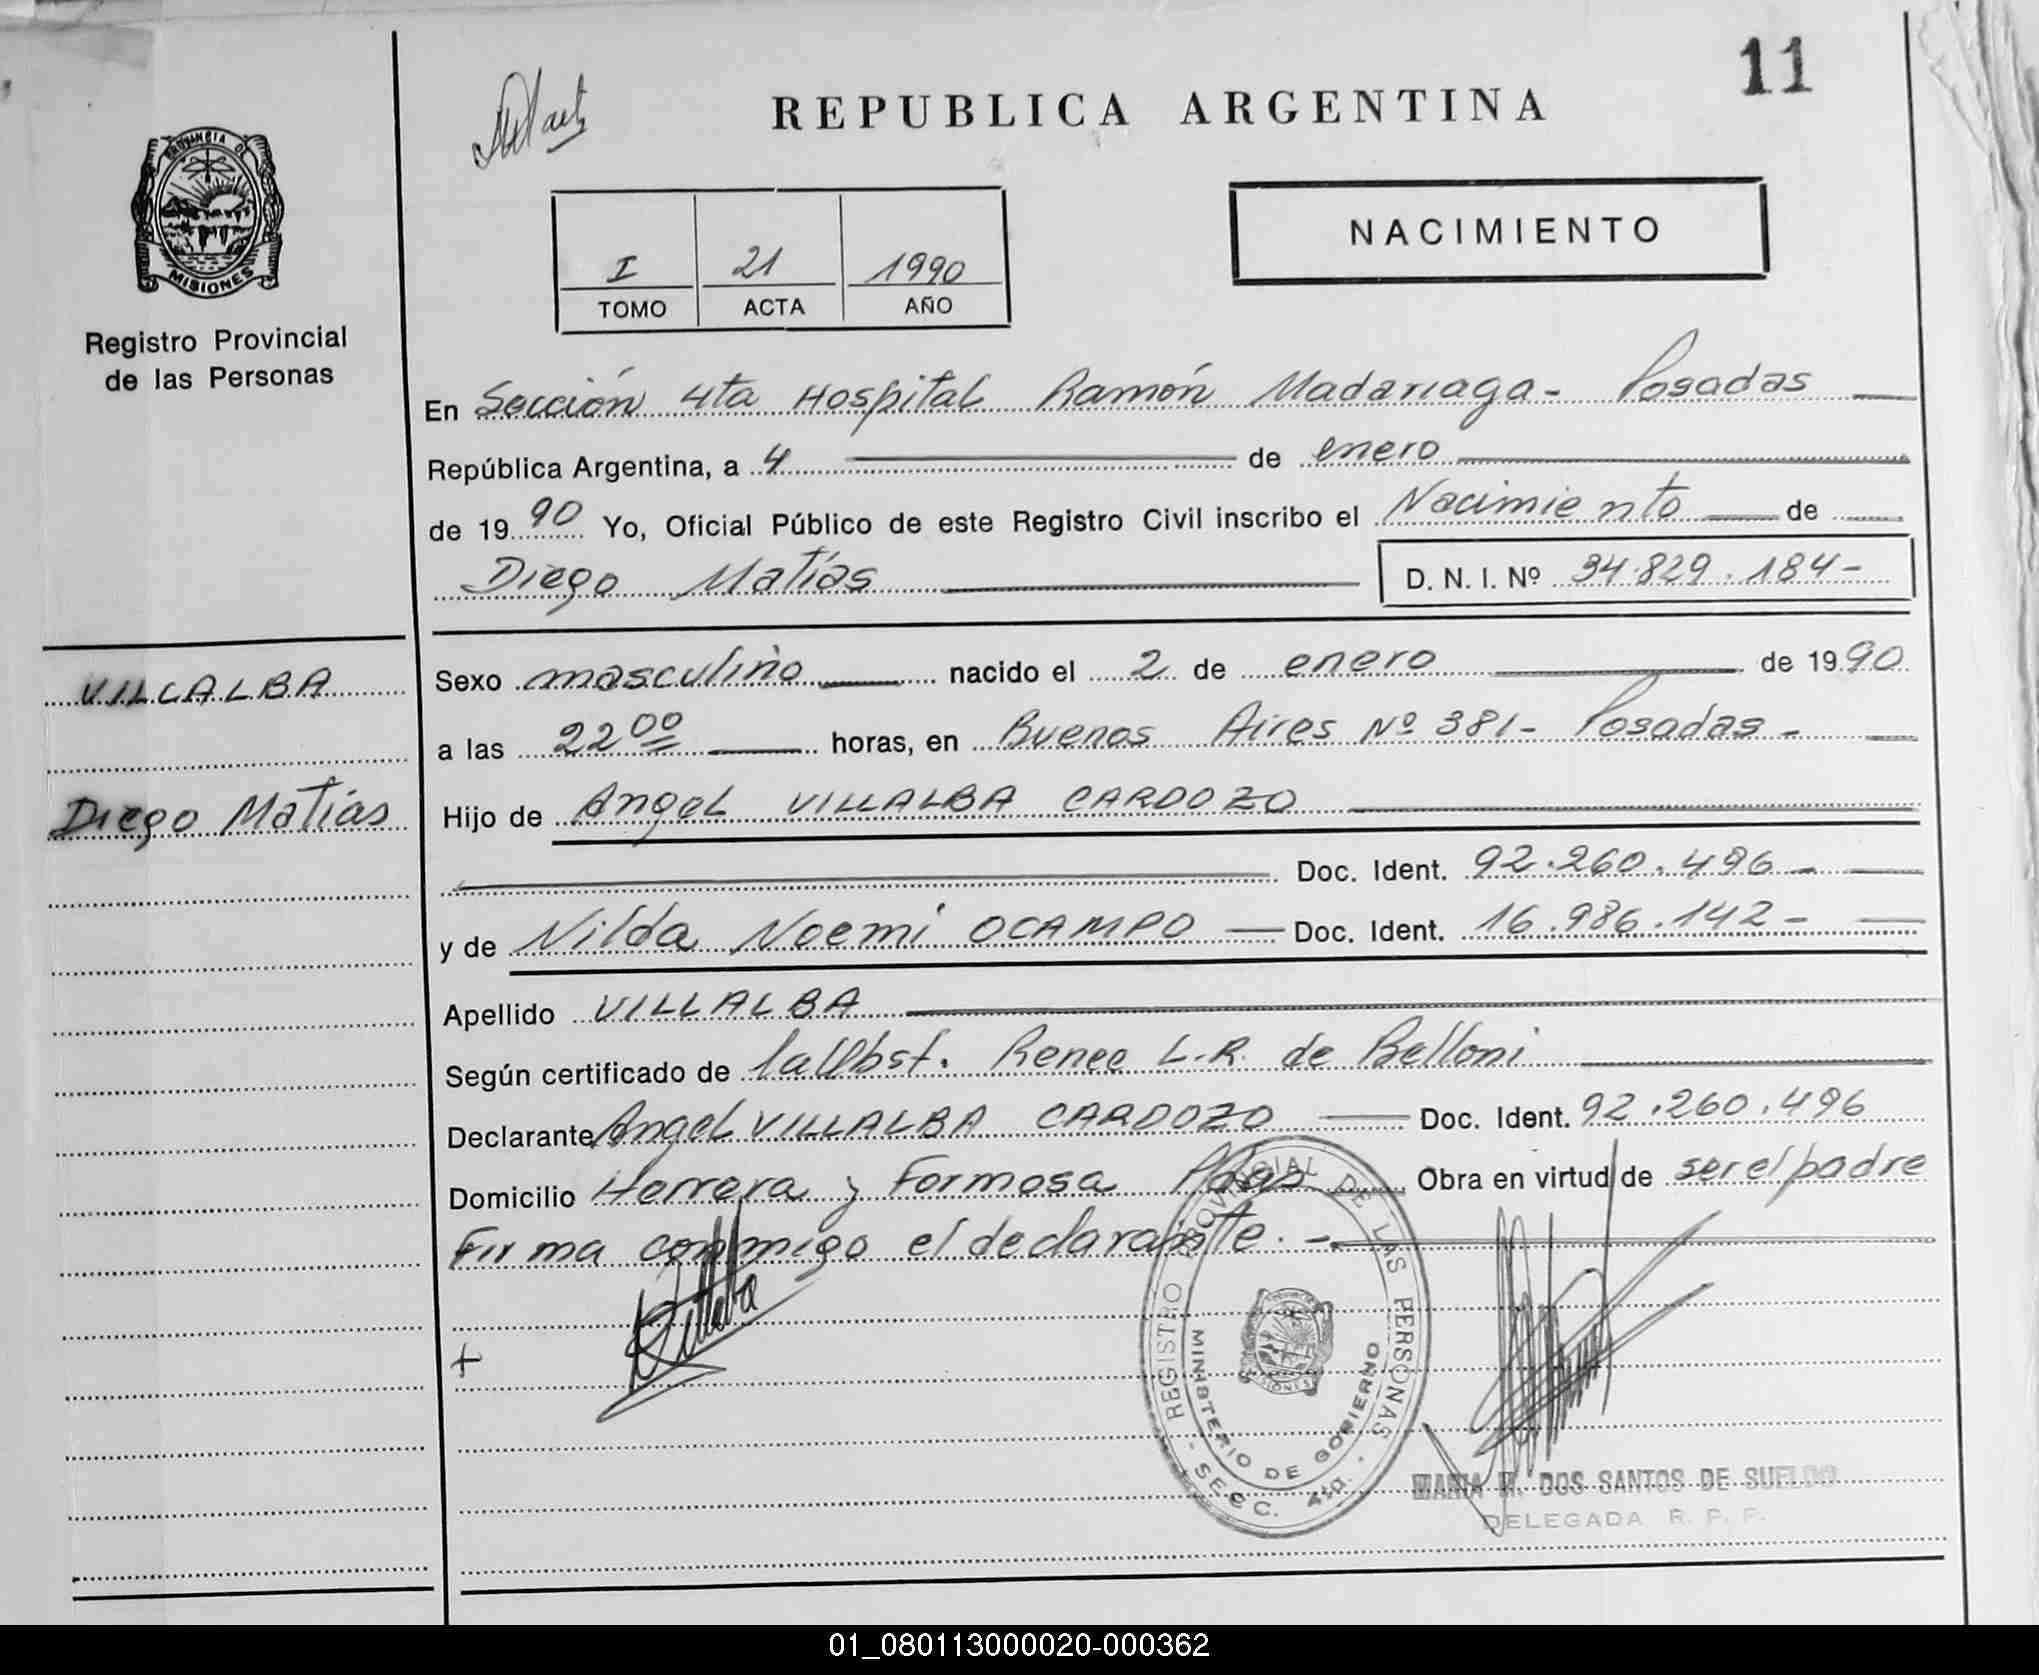 11
REPUBLICA ARGENTINA
PROVINCIA DE
MISIONES
NACIMIENTO
I 21 1990
TOMO ACTA AÑO
Registro Provincial
de las Personas
En Sección 4ta Hospital Ramón Madariaga - Posadas
República Argentina, a 4 de enero
de 1990 Yo, Oficial Público de este Registro Civil inscribo el Nacimiento de
Diego Matías D. N. I. Nº 34.829.184-
VILLALBA
Diego Matías
Sexo masculino nacido el 2 de enero de 1990
a las 22 00 horas, en Buenos Aires Nº 381- Posadas -
Hijo de Angel VILLALBA CARDOZO
Doc. Ident. 92.260.496-
y de Nilda Noemi OCAMPO Doc. Ident. 16.986.142-
Apellido VILLALBA
Según certificado de la Obst. Renee L.R. de Belloni
Declarante Angel VILLALBA CARDOZO Doc. Ident. 92.260.496
Domicilio Herrera y Formosa Pdas Obra en virtud de ser el padre
Firma conmigo el declarante. -
Villalba
REGISTRO PROVINCIAL DE LAS PERSONAS
MINISTERIO DE GOBIERNO
- SECC. 4ta. -
MISIONES
MARIA DOS SANTOS DE SUELDO
DELEGADA R. P. P.
01_080113000020-000362